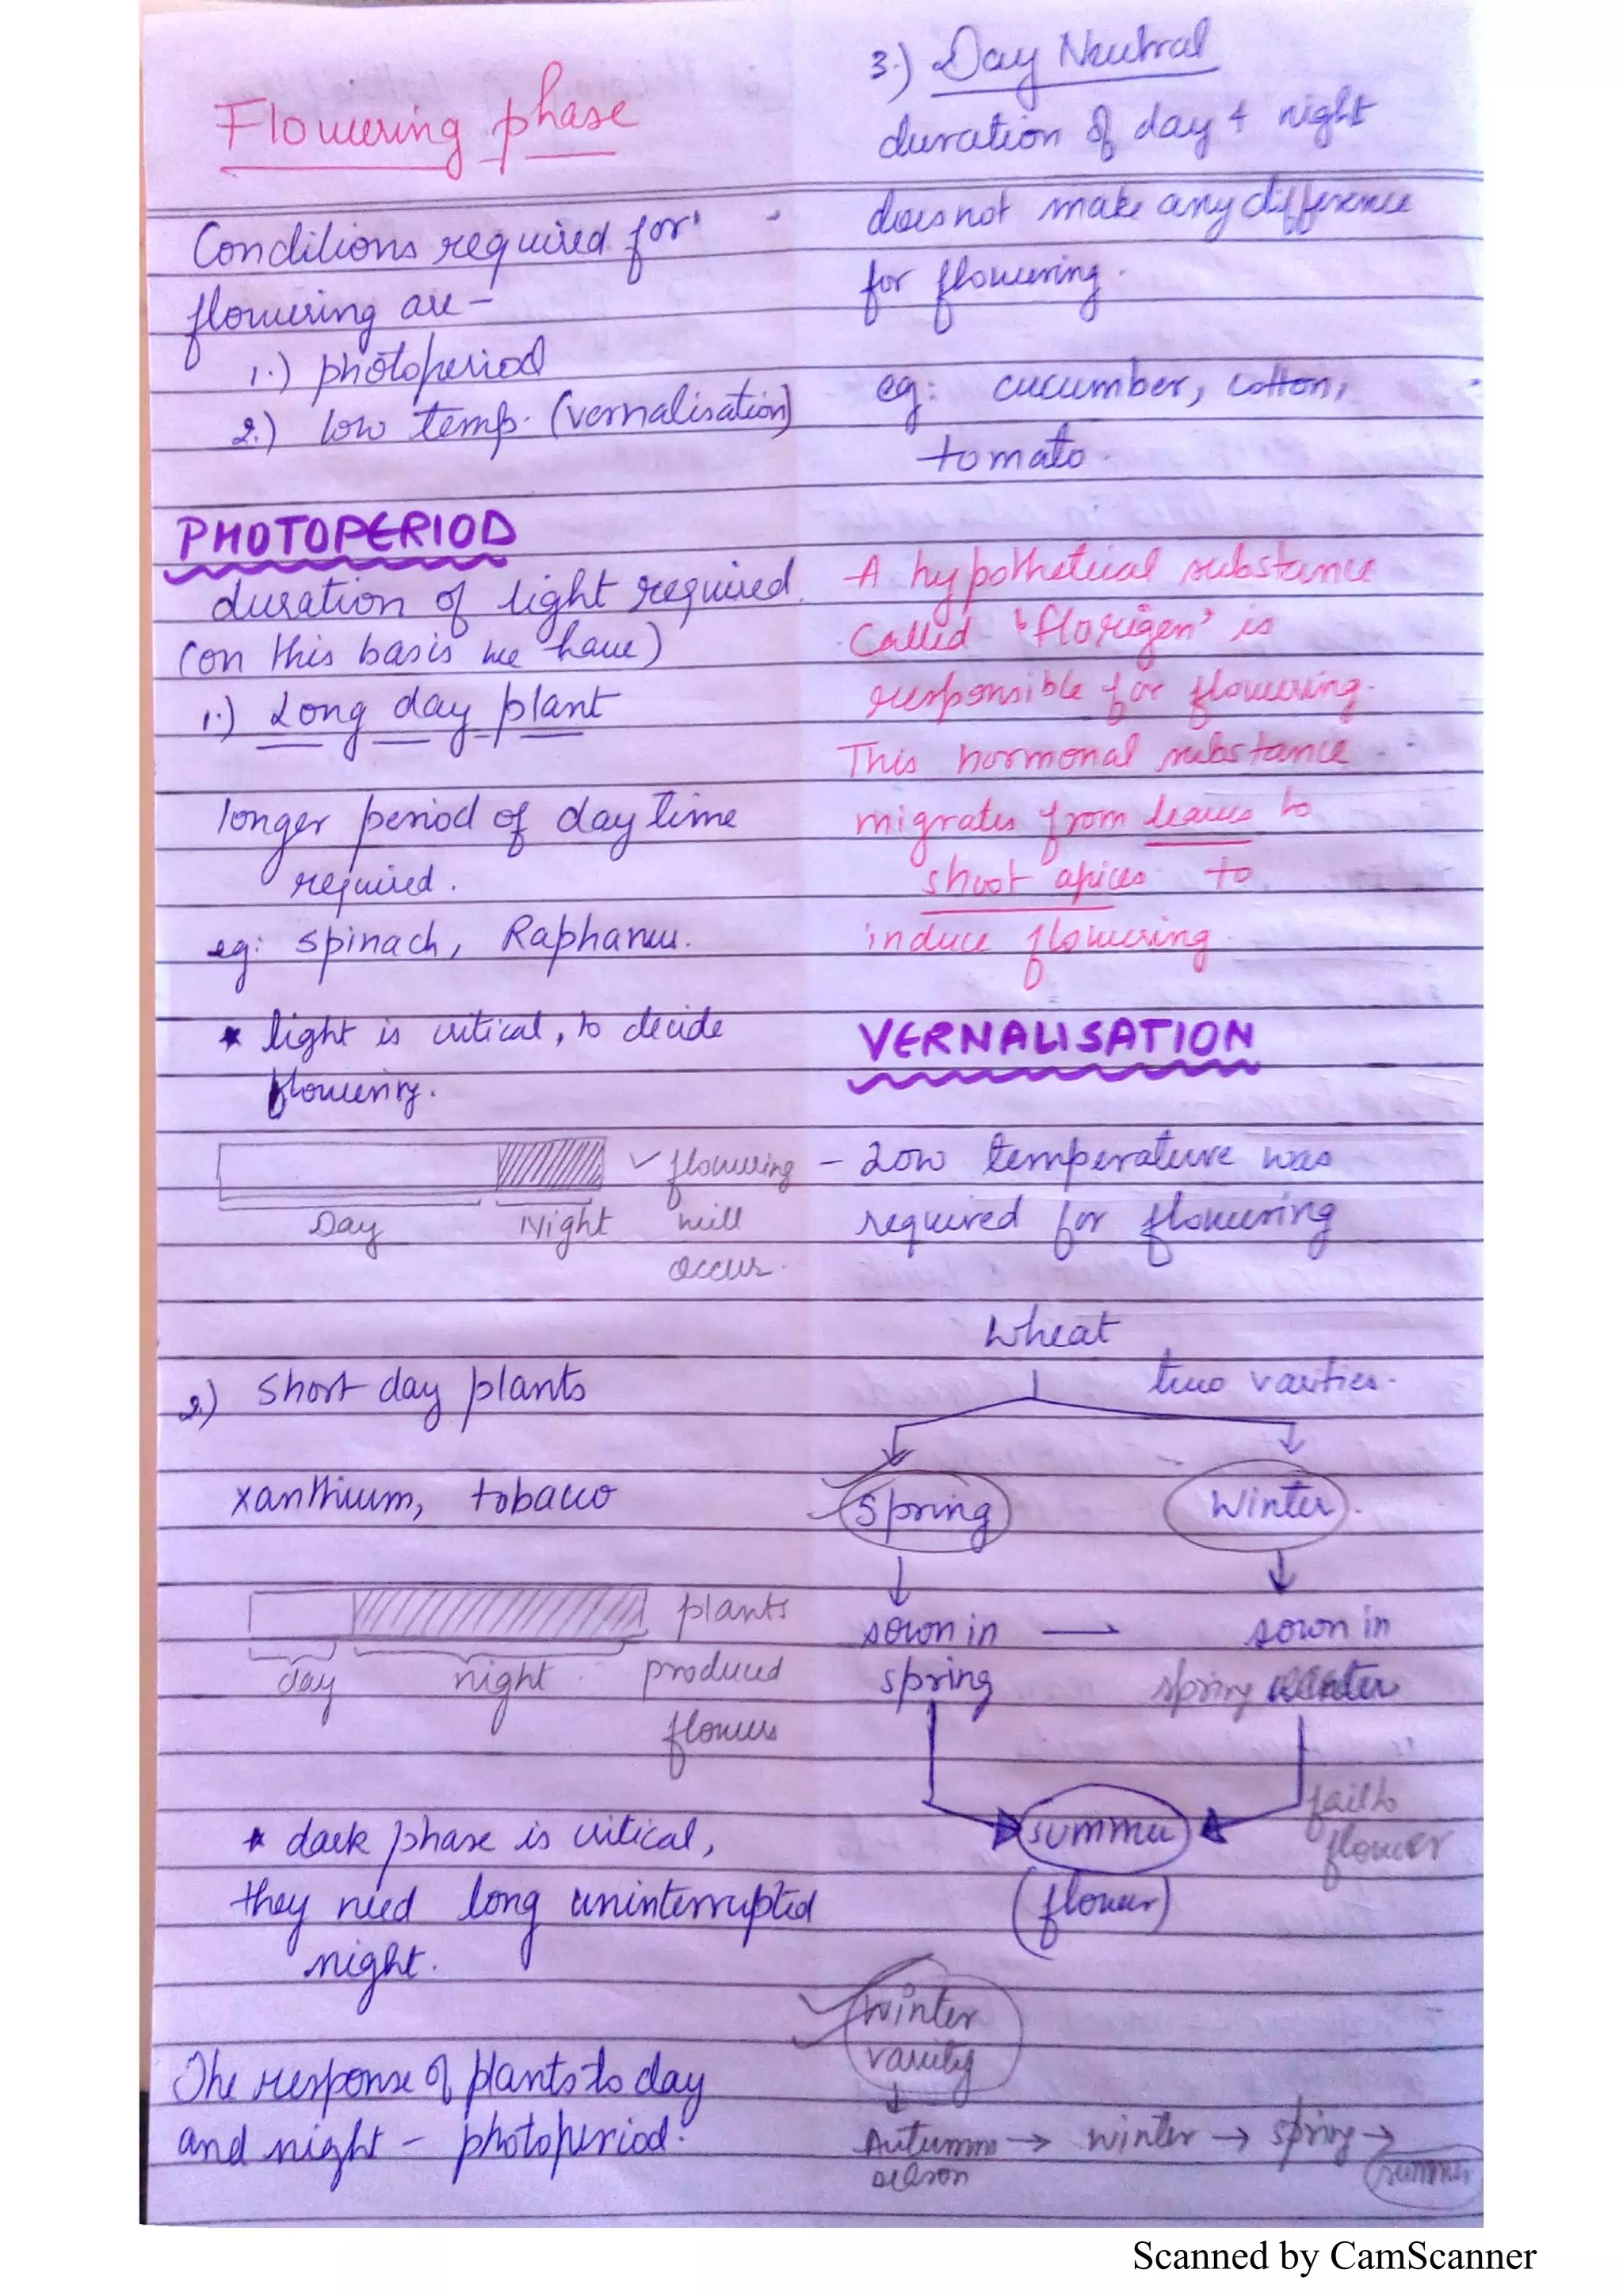 Flowering phase
Conditions required for
flowering are -
1.) photoperiod
2.) low temp. (vernalisation)
PHOTOPERIOD
duration of light required.
(on this basis we have)
1.) Long day plant
longer period of day time
required.
eg: spinach, Raphanus.
* light is critical, to decide
flowering.
✓ flowering
Day Night will
occur.
2.) Short day plants
xanthium, tobacco
plants
day night produced
flowers
* dark phase is critical,
they need long uninterrupted
night.
The response of plants to day
and night - photoperiod.
3.) Day Neutral
duration of day & night
does not make any difference
for flowering.
eg: cucumber, cotton,
tomato.
A hypothetical substance
called 'florigen' is
responsible for flowering.
This hormonal substance
migrates from leaves to
shoot apices to
induce flowering.
VERNALISATION
- Low temperature was
required for flowering
Wheat
two varities.
Spring Winter.
sown in — sown in
spring spring winter
fail to
summer flower
(flower)
Winter
varity
Autumn → winter → spring →
season summer
Scanned by CamScanner